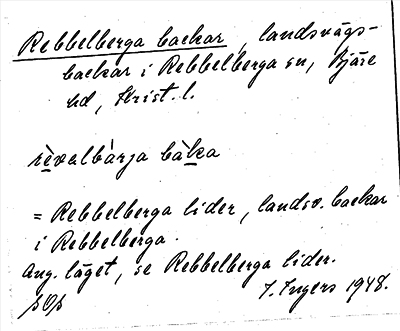 Rebbelberga backar, landsvägs-
backar i Rebbelberga sn, Bjäre
hd, Krist. l.
rèvalbàrja bàka
= Rebbelberga lider, landsv. backar
i Rebbelberga.
Ang. läget, se Rebbelberga lider.
I. Ingers 1948.